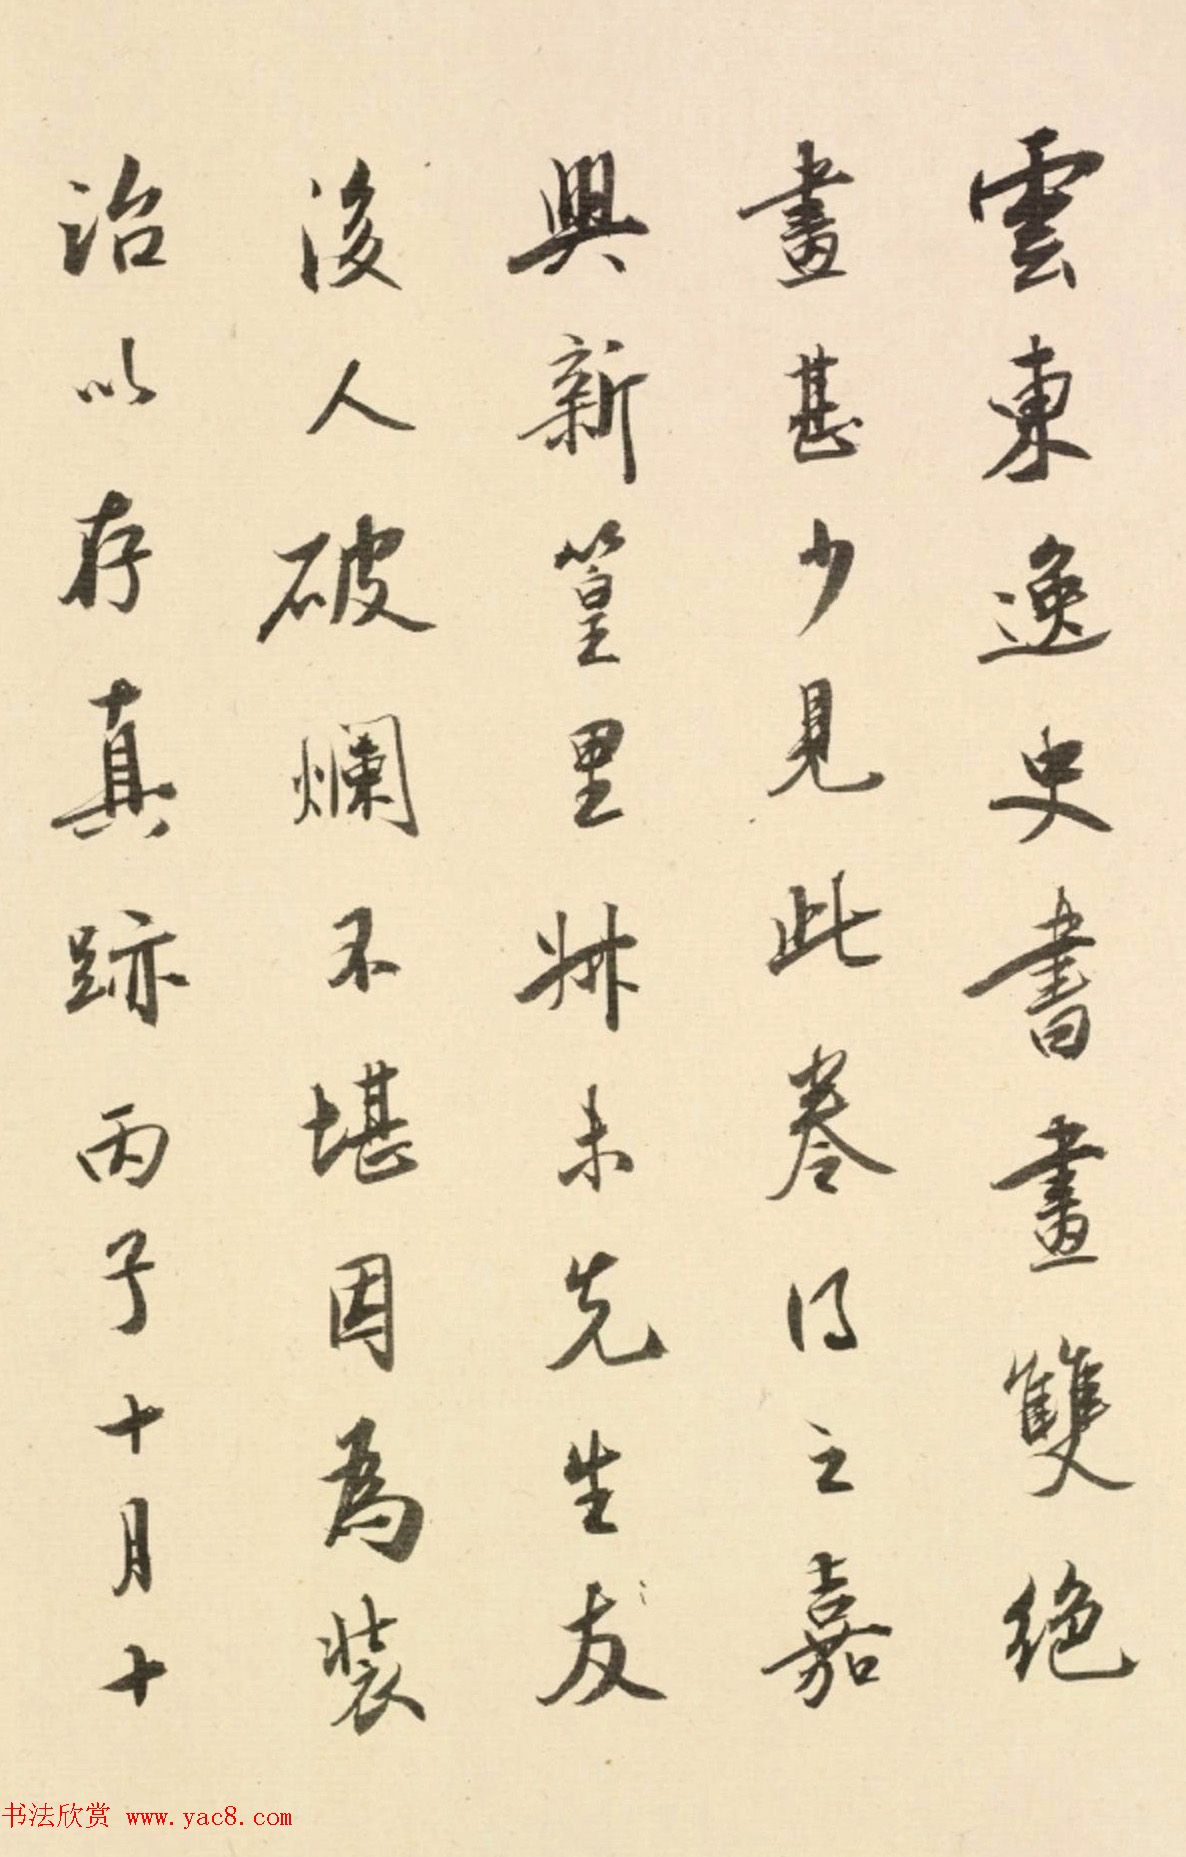 雲東逸史書畫雙絕
畫甚少見此卷得之嘉
興新篁里叔未先生友
後人破爛不堪因為裝
治以存真跡丙子十月十
书法欣赏 www.yac8.com